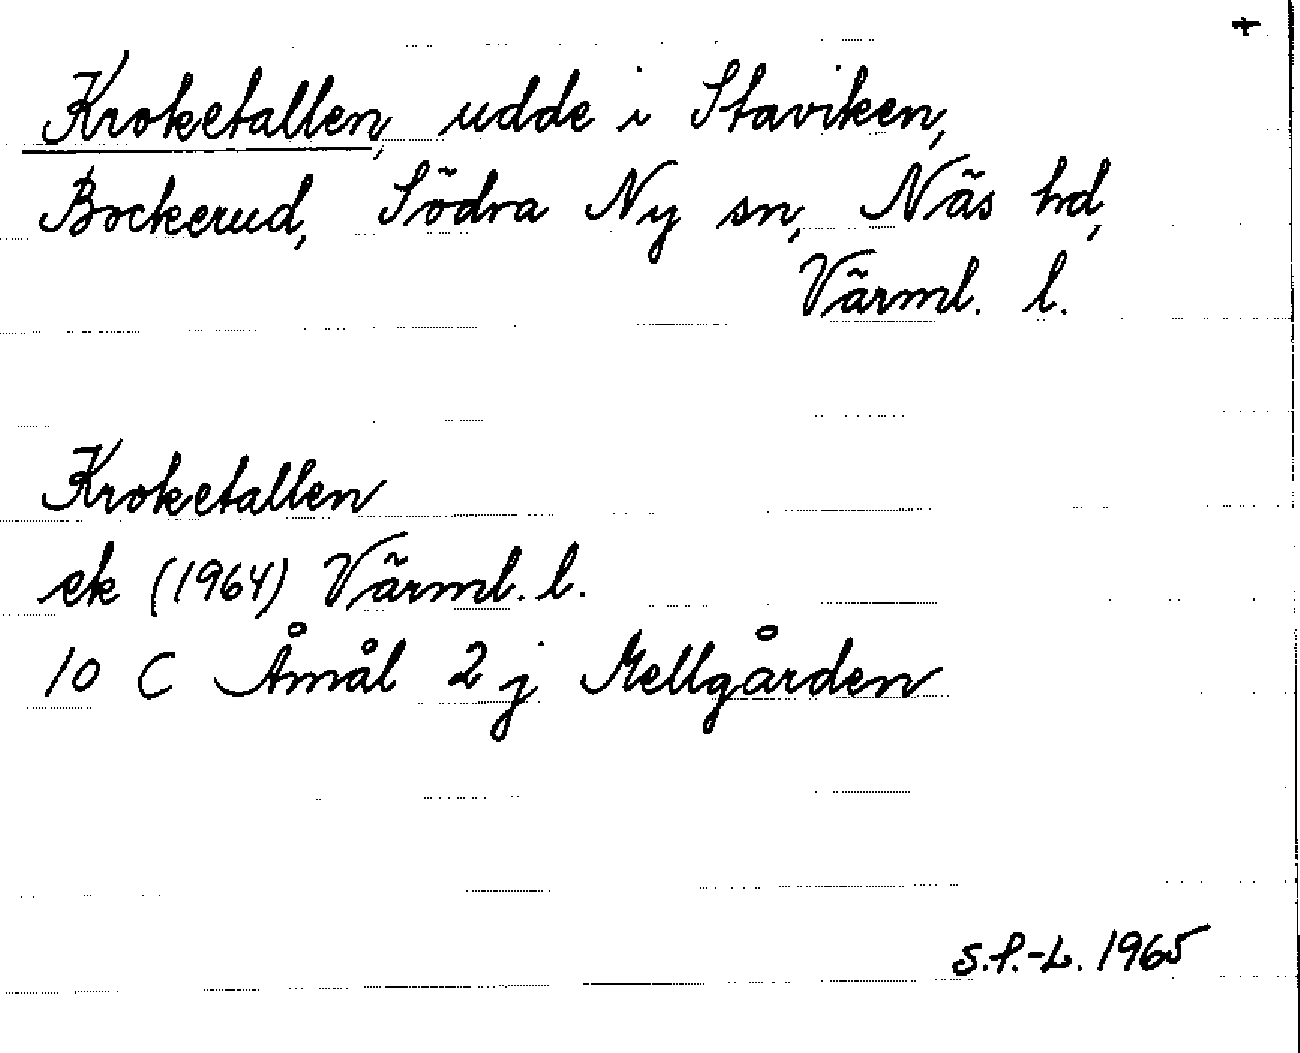 +
Kroketallen, udde i Staviken,
Bockerud, Södra Ny sn, Näs hd,
Värml. l.
Kroketallen
ek (1964) Värml. l.
10 C Åmål 2 j Mellgården
S.P.-L. 1965